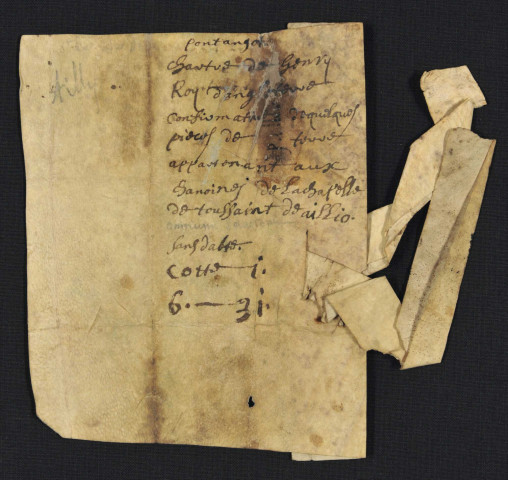 pontangon
Chartre de Henry
Roy d'engleterre
confirmative de quelques
pieces de terre
appartenant aux
chanoines de la chapelle
de toussaint de aillio.
sans datte.
Cotte 1.
6. — 31.